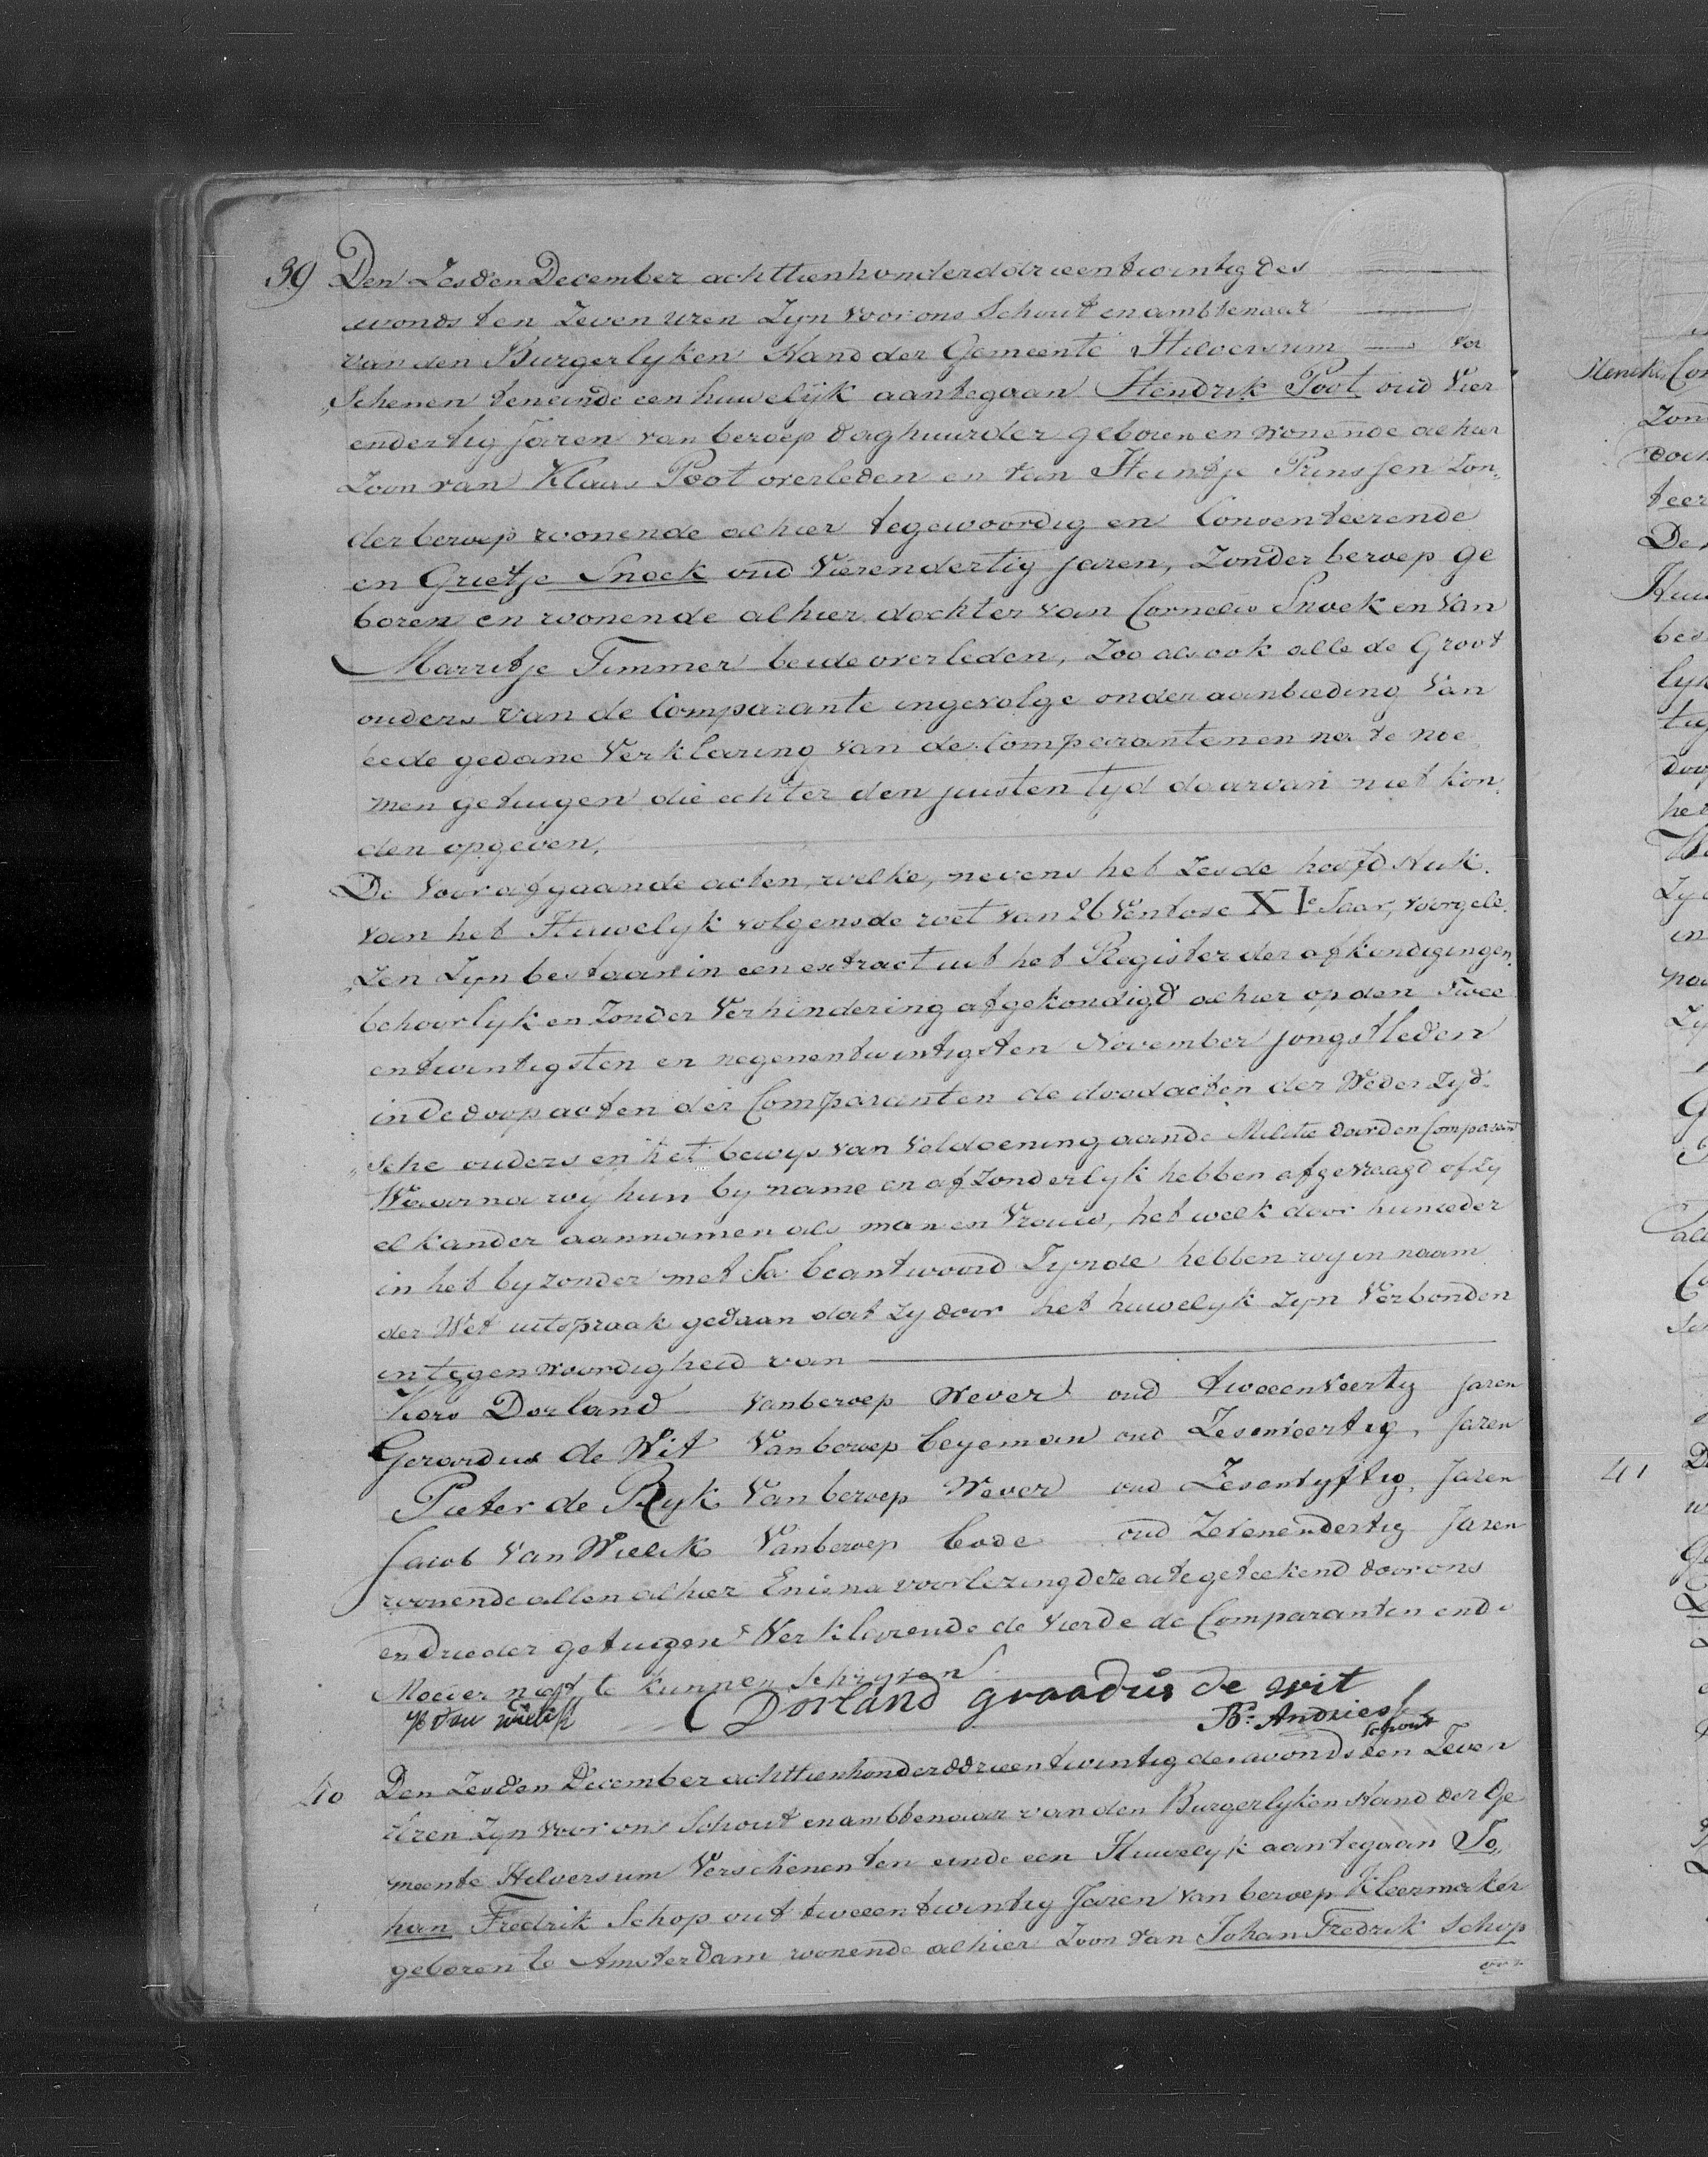 39 Den Zesden December achttienhonderddrieentwintig des
avonds ten Zeven uren Zyn voor ons Schout en ambtenaar
van den Burgerlyken Stand der Gemeente Hilversum — ver
„Schenen teneinde een huwelijk aantegaan Hendrik Poot oud Vier
endertig Jaren van beroep daghuurder geboren en wonende alhier
Zoon van Klaas Poot overleden en van Heintje Prinssen Zon„
der beroep wonende alhier tegewoordig en Consenteerende
en Grietje Snoek oud Vierendertig jaren, Zonder beroep ge
boren en wonende alhier dochter van Cornelis Snoek en Van
Marritje Timmer beide overleden, Zoo als ook alle de Groot
ouders van de Comparante ingevolge onder aanbieding Van
eede gedane Verklaring van de Comparanten en na te noe„
men getuigen die echter den juisten tyd daarvan niet kon„
den opgeven,
De Voorafgaande acten, welke, nevens het Zesde hoofdstuk
van het Huwelijk volgens de wet van 26 Ventose XIe Jaar, voorgele„
„Zen Zyn bestaan in een extract uit het Register der afkondigingen
behoorlyk en Zonder Verhindering afgekondigd alhier op den Twee
entwintigsten en negenentwintigsten November jongstleden
in de doopacten der Comparanten de doodacten der Weder Zyd„
„sche ouders en het bewys van Voldoening aan de Militie door den Comparant
Waarna wy hun by name en afzonderlyk hebben afgevraagd of Zy
elkander aannamen als man en Vrouw, het welk door hun ieder
in het byzonder met Ja beantwoord Zynde hebben wy in naam
der Wet uitspraak gedaan dat Zy door het huwelyk Zyn Verbonden
in tegenwoordigheid van
Kors Dorland Van beroep Wever oud tweeenveertig Jaren
Gerardus de Wit Van beroep Ceyeman oud Zesenveertig, Jaren
Pieter de Ryk Van beroep Wever oud Zesenvyftig, Jaren
Jacob Van Wielik Van beroep bode oud Zevenendertig Jaren
wonende allen alhier En is na voorlezing deze acte geteekend door ons
en drie der getuigen Verklarende de Vierde de Comparanten en de
Moeder niet te kunnen schryven
C Dorland graadus de wit
B: Andriesse
Schout
40 Den Zesden December achttienhonderddrieentwintig des avonds ten Zeven
Uren Zyn voor ons Schout en ambtenaar van den Burgerlyken Stand der Ge
meente Hilversum Verschenen ten einde een Huwelyk aantegaan Jo„
han Fredrik Schop out tweeentwintig Jaren van beroep Kleermaker
geboren te Amsterdam wonende alhier Zoon van Johan Fredrik Schop
41